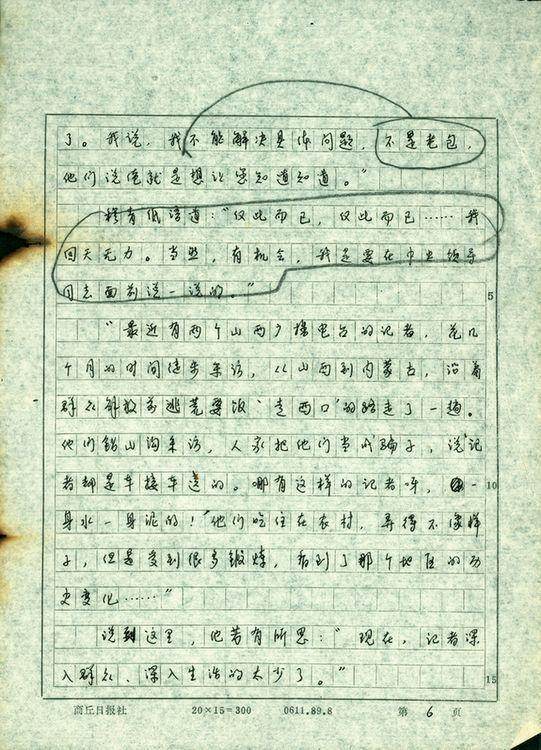 了。我说，我不能解决具体问题，不是老包，
他们说俺就是想让您知道知道。”
穆青低语道：“仅此而已，仅此而已……我
回天无力。当然，有机会，我是要在中央领导
同志面前说一说的。”
5
“最近有两个山西广播电台的记者，花几
个月的时间徒步采访，从山西到内蒙古，沿着
群众解放前逃荒要饭‘走西口’的路走了一趟。
他们钻山沟采访，人家把他们当成骗子，说‘记
者都是车接车送的。哪有这样的记者呀，一
10
身水一身泥的！’他们吃住在农村，弄得不像样
子，但是受到很多锻炼，看到了那个地区的历
史变化……”
说到这里，他若有所思：“现在，记者深
入群众、深入生活的太少了。”
15
商丘日报社 20×15=300 0611.89.8 第 6 页